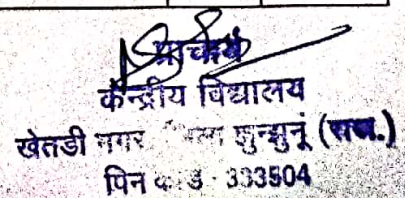 प्राचार्य
केन्द्रीय विद्यालय
खेतडी नगर झुन्झुनूं (राज.)
पिन कोड - 333504